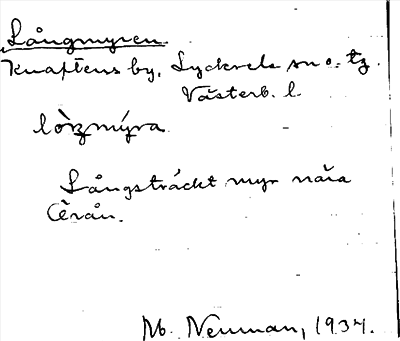 Långmyren.
Knaftens by, Lycksele sn o. tg.
Västerb. l.
Långsträckt myr nära
Örån.
M. Neuman, 1937.